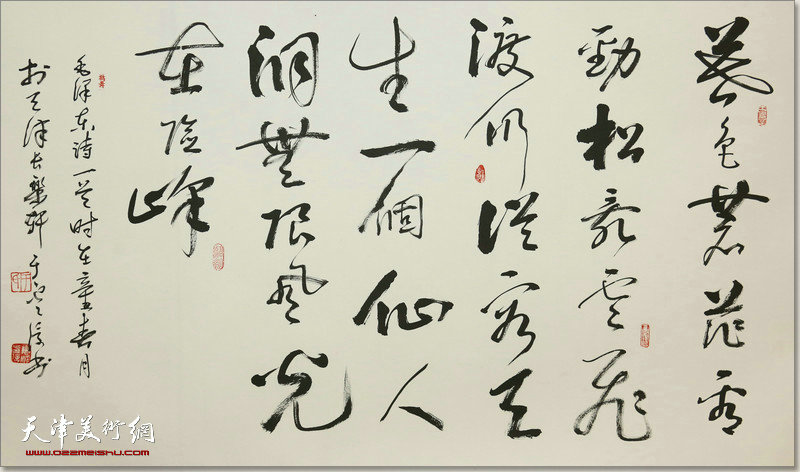 暮色蒼茫看
勁松亂雲飛
渡仍從容天
生一個仙人
洞無限風光
在險峰
毛澤東詩一首时在辛丑春月
於天津長樂軒 于
天津美術網
www.022meishu.com